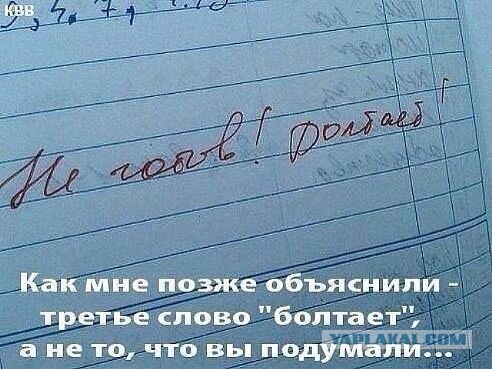 КВВ
Не готов! Болтает!
Как мне позже объяснили -
третье слово "болтает",
а не то, что вы подумали...
YAPLAKAL.COM